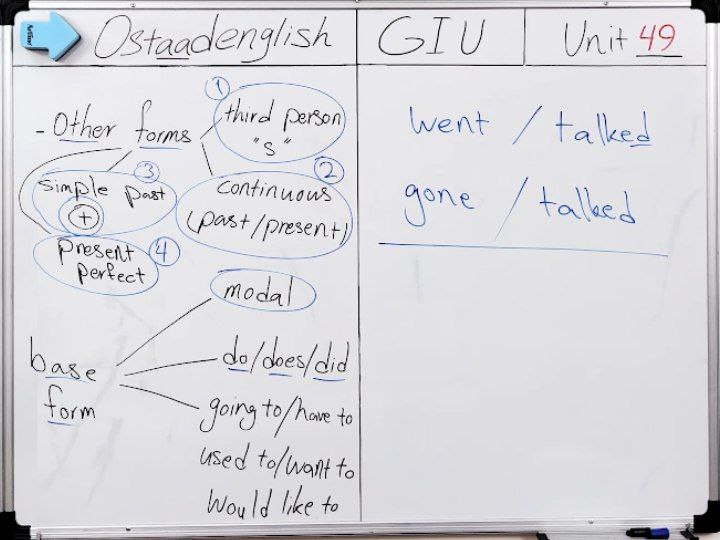 Artline
Ostaadenglish
GIU
Unit 49
- Other forms
① third person
"s"
② continuous
(past/present)
③ simple past
+
④ present
perfect
base
form
modal
do/does/did
going to/have to
used to/want to
would like to
went / talked
gone / talked